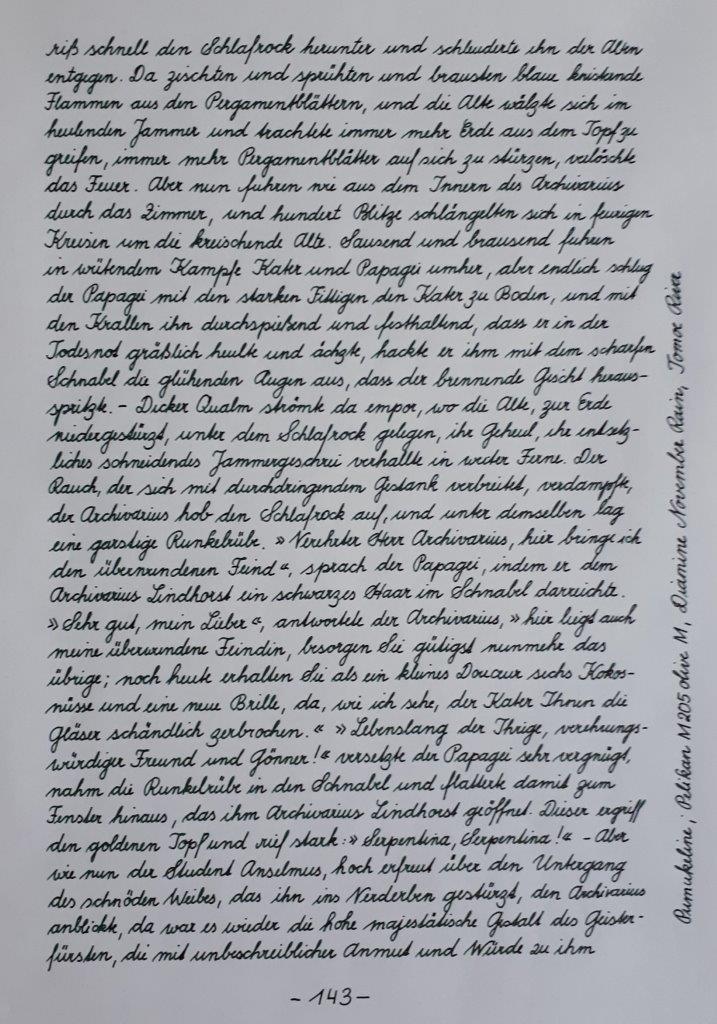 riß schnell den Schlafrock herunter und schleuderte ihn der Alten
entgegen. Da zischten und sprühten und brausten blaue knisternde
Flammen aus den Pergamentblättern, und die Alte wälzte sich im
heulenden Jammer und trachtete immer mehr Erde aus dem Topf zu
greifen, immer mehr Pergamentblätter auf sich zu stürzen, verlöschte
das Feuer. Aber nun fuhren wie aus dem Innern des Archivarius
durch das Zimmer, und hundert Blitze schlängelten sich in feurigen
Kreisen um die kreischende Alte. Sausend und brausend fuhren
in wütendem Kampfe Kater und Papagei umher, aber endlich schlug
der Papagei mit den starken Fittigen den Kater zu Boden, und mit
den Krallen ihn durchspießend und festhaltend, dass er in der
Todesnot gräßlich heulte und ächzte, hackte er ihm mit dem scharfen
Schnabel die glühenden Augen aus, dass der brennende Gischt heraus-
spritzte. – Dicker Qualm strömte da empor, wo die Alte, zur Erde
niedergestürzt, unter dem Schlafrock gelegen, ihr Geheul, ihr entsetz-
liches schneidendes Jammergeschrei verhallte in weiter Ferne. Der
Rauch, der sich mit durchdringendem Gestank verbreitet, verdampfte,
der Archivarius hob den Schlafrock auf, und unter demselben lag
eine garstige Runkelrübe. » Verehrter Herr Archivarius, hier bringe ich
den überwundenen Feind «, sprach der Papagei, indem er dem
Archivarius Lindhorst ein schwarzes Haar im Schnabel darreichte.
» Sehr gut, mein Lieber «, antwortete der Archivarius, » hier liegt auch
meine überwundene Feindin, besorgen Sie gütigst nunmehr das
übrige; noch heute erhalten Sie als ein kleines Douceur sechs Kokos-
nüsse und eine neue Brille, da, wie ich sehe, der Kater Ihnen die
Gläser schändlich zerbrochen. « » Lebenslang der Ihrige, verehrungs-
würdiger Freund und Gönner! « versetzte der Papagei sehr vergnügt,
nahm die Runkelrübe in den Schnabel und flatterte damit zum
Fenster hinaus, das ihm Archivarius Lindhorst geöffnet. Dieser ergriff
den goldenen Topf und rief stark: » Serpentina, Serpentina! « – Aber
wie nun der Student Anselmus, hoch erfreut über den Untergang
des schnöden Weibes, das ihn ins Verderben gestürzt, den Archivarius
anblickte, da war es wieder die hohe majestätische Gestalt des Geister-
fürsten, die mit unbeschreiblicher Anmut und Würde zu ihm
– 143 –
Pamukeline; Pelikan M205 olive M, Diamine November Rain, Tomoe River